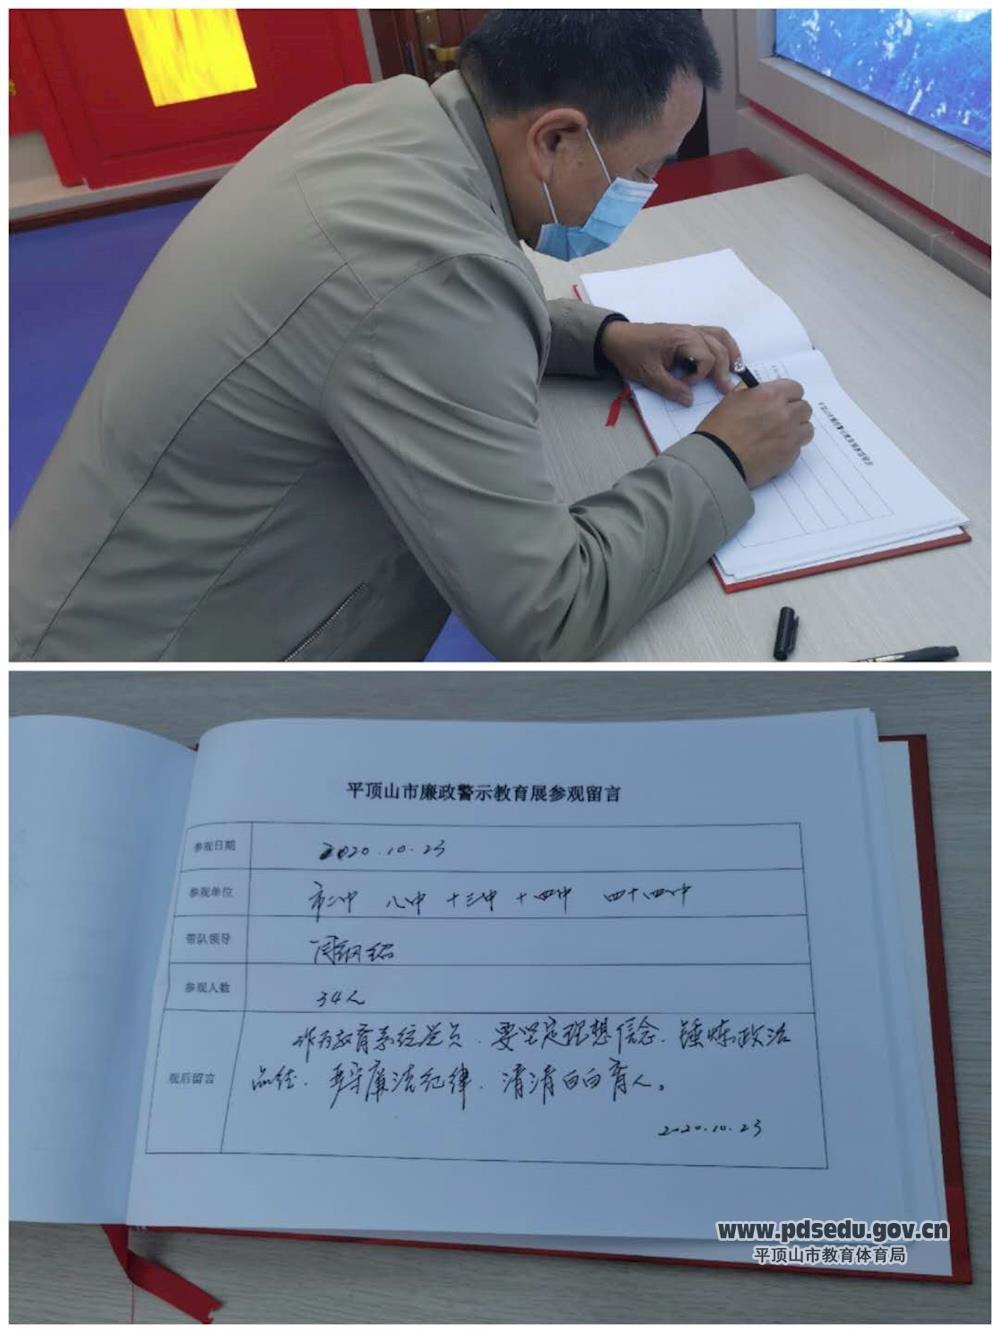 平顶山市廉政警示教育展参观留言
参观日期 2020.10.23
参观单位 市二中 八中 十三中 十四中 四十四中
带队领导
参观人数 34人
观后留言 作为教育系统党员，要坚定理想信念，锤炼政治
品德，严守廉洁纪律，清清白白育人。
2020.10.23
www.pdsedu.gov.cn
平顶山市教育体育局